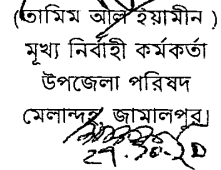 (তামিম আল ইয়ামীন )
মূখ্য নির্বাহী কর্মকর্তা
উপজেলা পরিষদ
মেলান্দহ, জামালপুর।